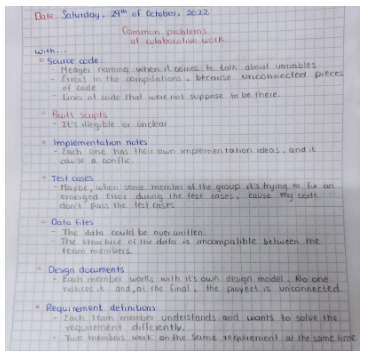 Date: Saturday, 29th of October, 2022
Common problems
at colaborative work
With...
Source code:
- Merger naming when it comes to talk about variables
- Errors in the compilations, because unconnected pieces
of code
- Lines of code that were not suppose to be there.
Built scripts
- It's illegible or unclear
Implementation notes
- Each one has their own implementation ideas, and it
cause a conflic.
Test cases
- Maybe, when some member of the group it's trying to fix an
emerged error during the test cases, cause my code
don't pass the test cases
Data files
- The data could be overwritten
- The structure of the data is incompatible between the
team members.
Design documents
- Each member works with it's own design model. No one
notices it and, at the final, the proyect is unconnected.
Requirement definitions
- Each team member understands and wants to solve the
requirement differently.
- Two members work on the same requirement at the same time